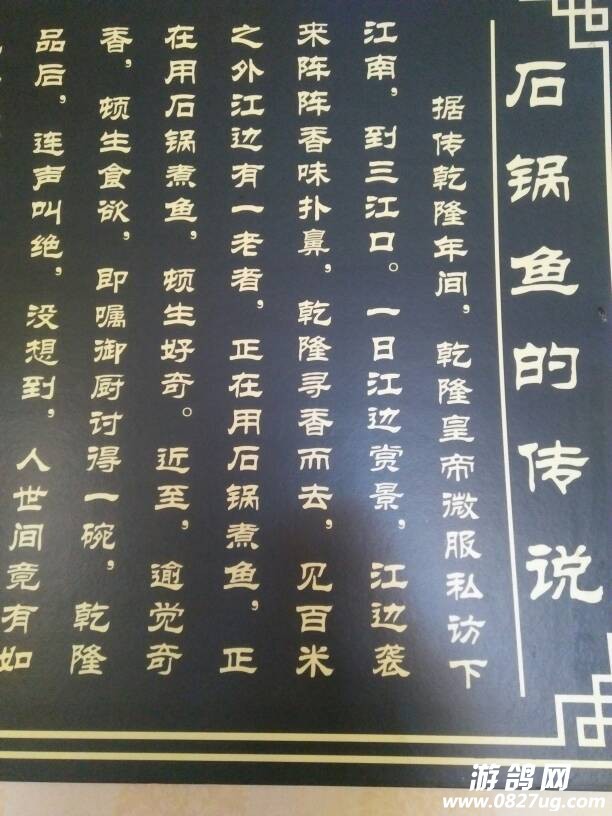 石锅鱼的传说
据传乾隆年间，乾隆皇帝微服私访下
江南，到三江口。一日江边赏景，江边袭
来阵阵香味扑鼻，乾隆寻香而去，见百米
之外江边有一老者，正在用石锅煮鱼，正
在用石锅煮鱼，顿生好奇。近至，逾觉奇
香，顿生食欲，即嘱御厨讨得一碗，乾隆
品后，连声叫绝，没想到，人世间竟有如
游鸽网
www.0827ug.com